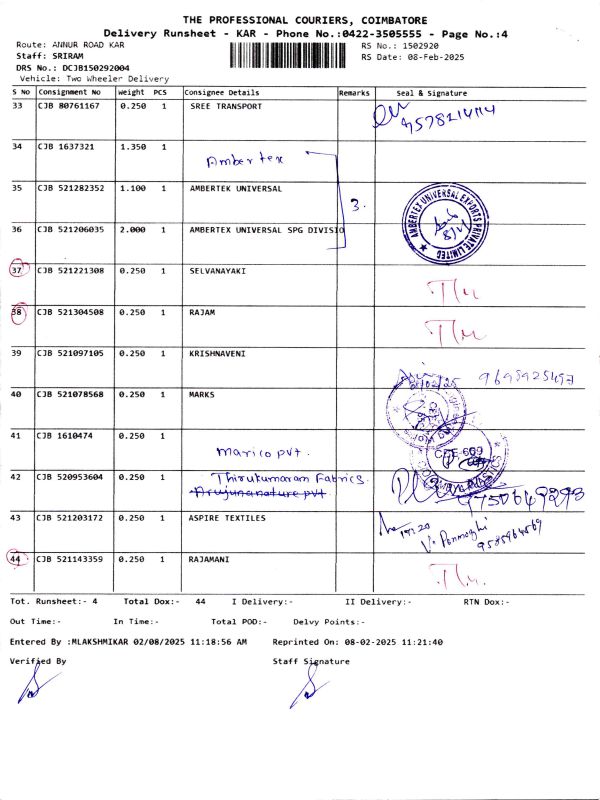 THE PROFESSIONAL COURIERS, COIMBATORE
Delivery Runsheet - KAR - Phone No.:0422-3505555 - Page No.:4
Route: ANNUR ROAD KAR RS No.: 1502920
Staff: SRIRAM RS Date: 08-Feb-2025
DRS No.: DCJB150292004
Vehicle: Two Wheeler Delivery
S No Consignment No Weight PCS Consignee Details Remarks Seal & Signature
33 CJB 80761167 0.250 1 SREE TRANSPORT
34 CJB 1637321 1.350 1 Ambertex
35 CJB 521282352 1.100 1 AMBERTEK UNIVERSAL 3.
AMBERTEX UNIVERSAL EXPORTS PRIVATE LIMITED
36 CJB 521206035 2.000 1 AMBERTEX UNIVERSAL SPG DIVISIO
37 CJB 521221308 0.250 1 SELVANAYAKI
38 CJB 521304508 0.250 1 RAJAM
39 CJB 521097105 0.250 1 KRISHNAVENI 9698925497
40 CJB 521078568 0.250 1 MARKS
41 CJB 1610474 0.250 1 Marico pvt.
42 CJB 520953604 0.250 1 Thirukumaram Fabrics.
Arujunanature pvt
9750649293
43 CJB 521203172 0.250 1 ASPIRE TEXTILES
44 CJB 521143359 0.250 1 RAJAMANI
Tot. Runsheet:- 4 Total Dox:- 44 I Delivery:- II Delivery:- RTN Dox:-
Out Time:- In Time:- Total POD:- Delvy Points:-
Entered By :MLAKSHMIKAR 02/08/2025 11:18:56 AM Reprinted On: 08-02-2025 11:21:40
Verified By Staff Signature